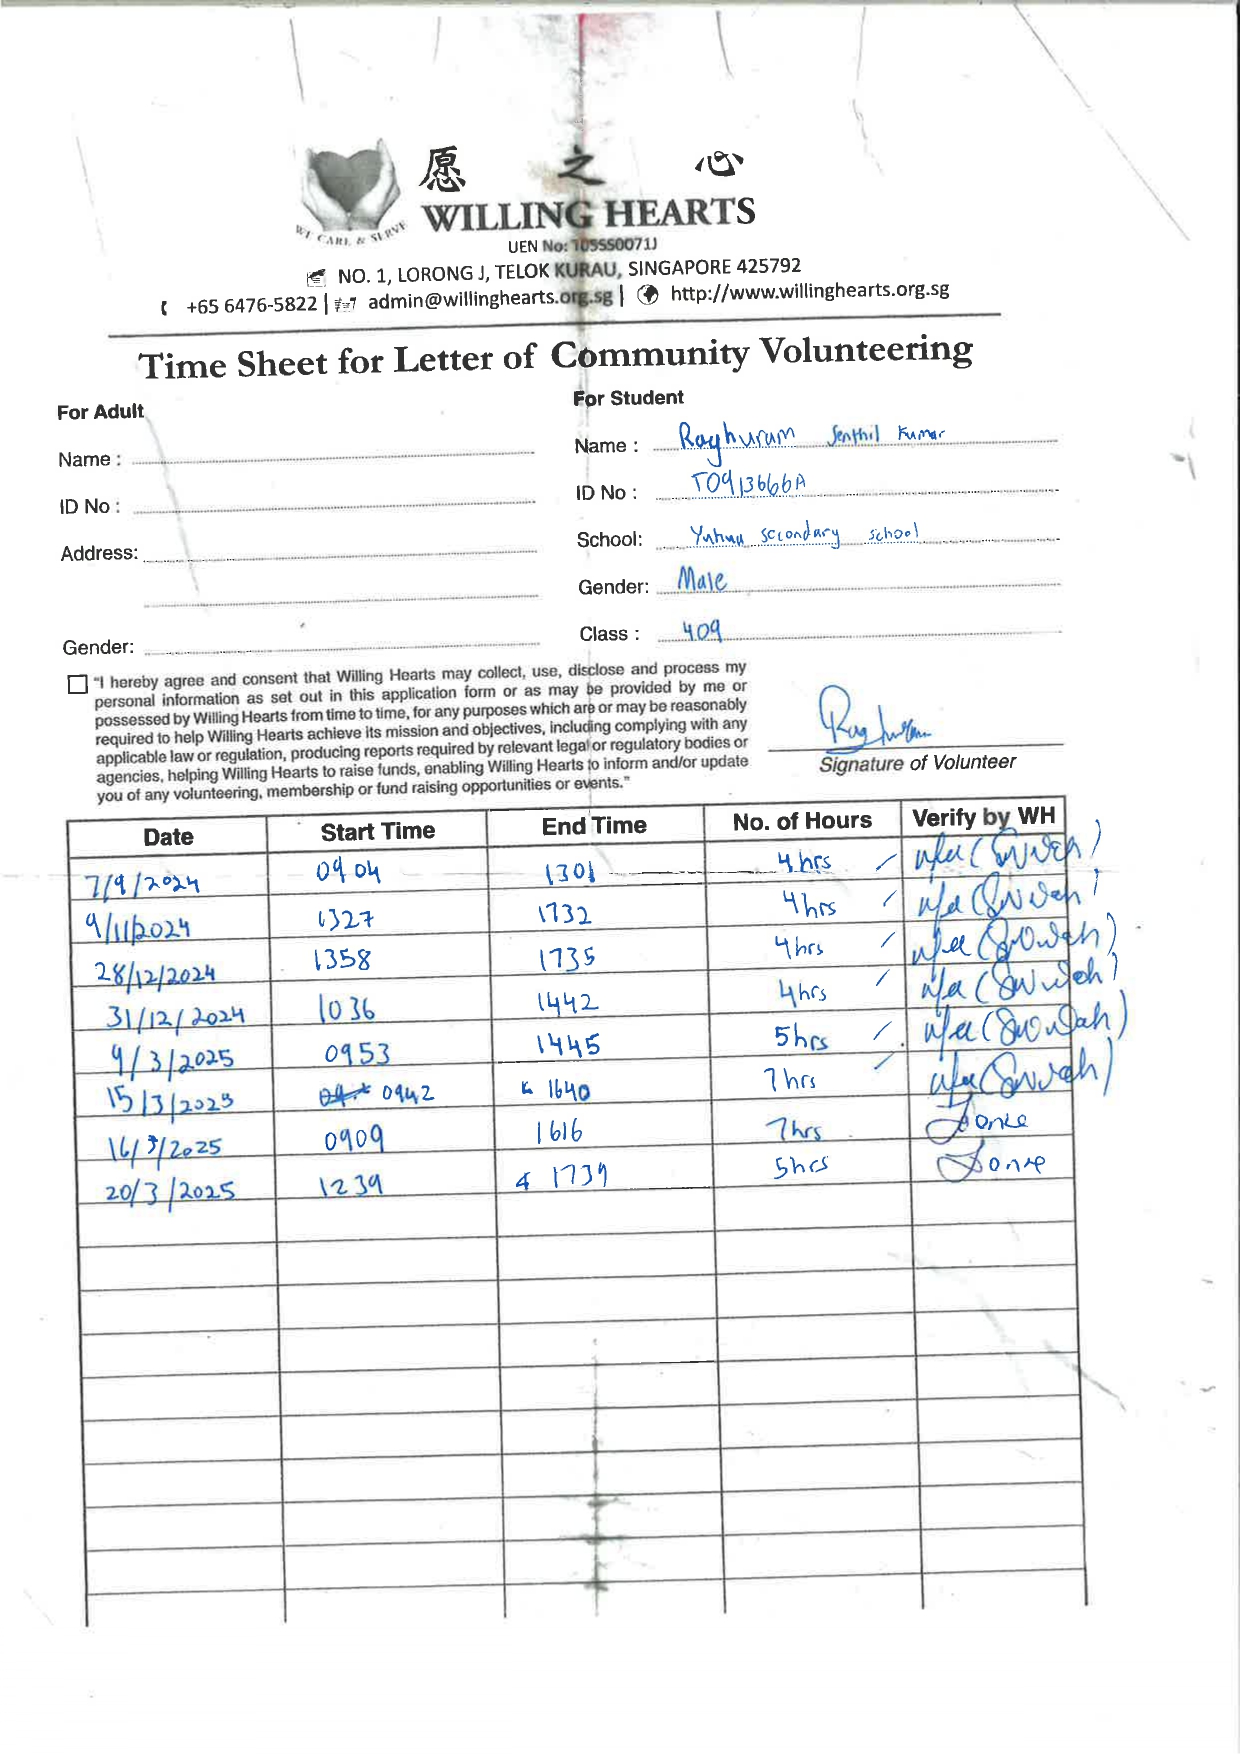 愿之心
WE CARE & SERVE
WILLING HEARTS
UEN No: 10SSS0071J
NO. 1, LORONG J, TELOK KURAU, SINGAPORE 425792
+65 6476-5822 | admin@willinghearts.org.sg | http://www.willinghearts.org.sg
Time Sheet for Letter of Community Volunteering
For Adult
Name :
ID No :
Address:
Gender:
For Student
Name : Raghuram Senthil Kumar
ID No : T0913666A
School: Yuhua secondary school
Gender: Male
Class : 409
"I hereby agree and consent that Willing Hearts may collect, use, disclose and process my
personal information as set out in this application form or as may be provided by me or
possessed by Willing Hearts from time to time, for any purposes which are or may be reasonably
required to help Willing Hearts achieve its mission and objectives, including complying with any
applicable law or regulation, producing reports required by relevant legal or regulatory bodies or
agencies, helping Willing Hearts to raise funds, enabling Willing Hearts to inform and/or update
you of any volunteering, membership or fund raising opportunities or events."
Raghuram
Signature of Volunteer
Date Start Time End Time No. of Hours Verify by WH
7/9/2024 0904 1301 4hrs
9/11/2024 1327 1732 4hrs
28/12/2024 1358 1735 4hrs
31/12/2024 1036 1442 4hrs
9/3/2025 0953 1445 5hrs
15/3/2025 0942 1640 7hrs
16/3/2025 0909 1616 7hrs
20/3/2025 1239 1739 5hrs